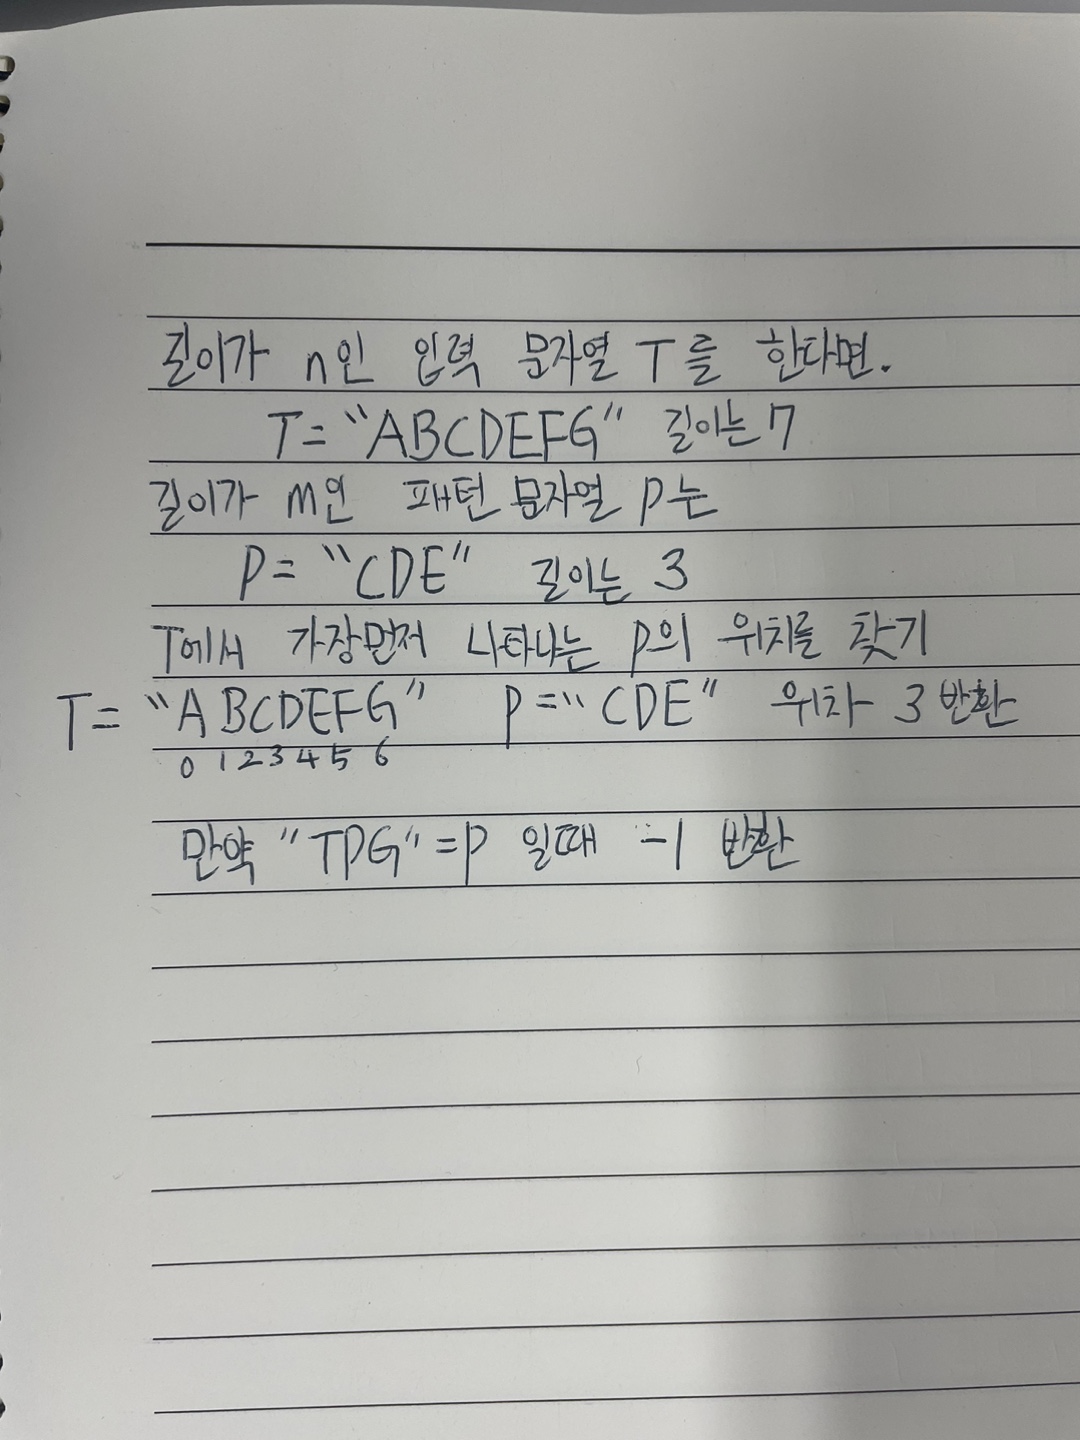 길이가 n인 입력 문자열 T를 한다면.
T = "ABCDEFG" 길이는 7
길이가 m인 패턴 문자열 P는
P = "CDE" 길이는 3
T에서 가장먼저 나타나는 P의 위치를 찾기
T = "ABCDEFG" P = "CDE" 위치 3 반환
0 1 2 3 4 5 6
만약 "TPG" = P 일때 -1 반환